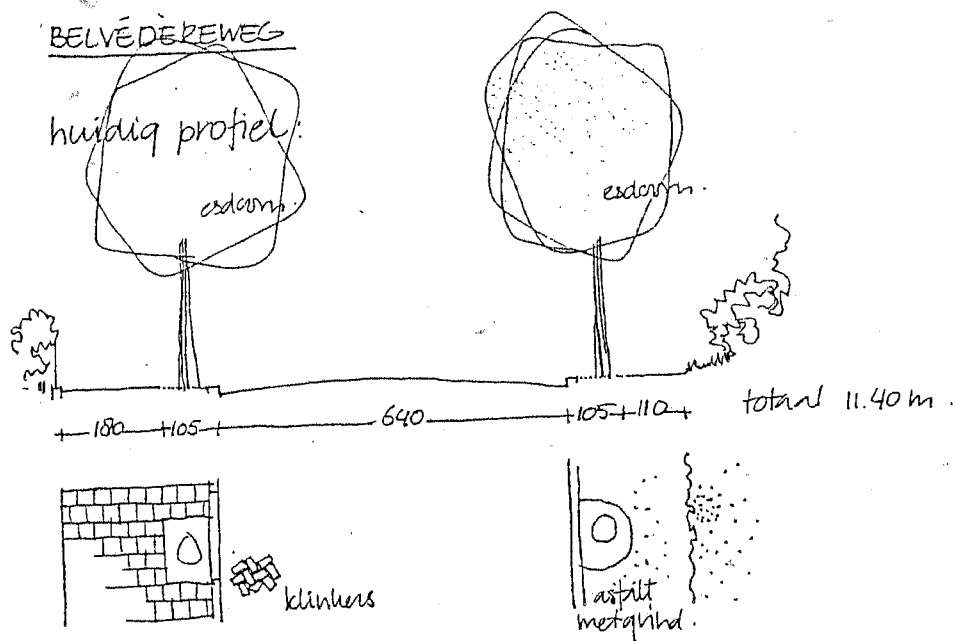 BELVÉDÈREWEG
huidig profiel:
esdoorn.
esdoorn.
180 105 640 105 110
totaal 11.40 m.
klinkers
asfalt
met grind.